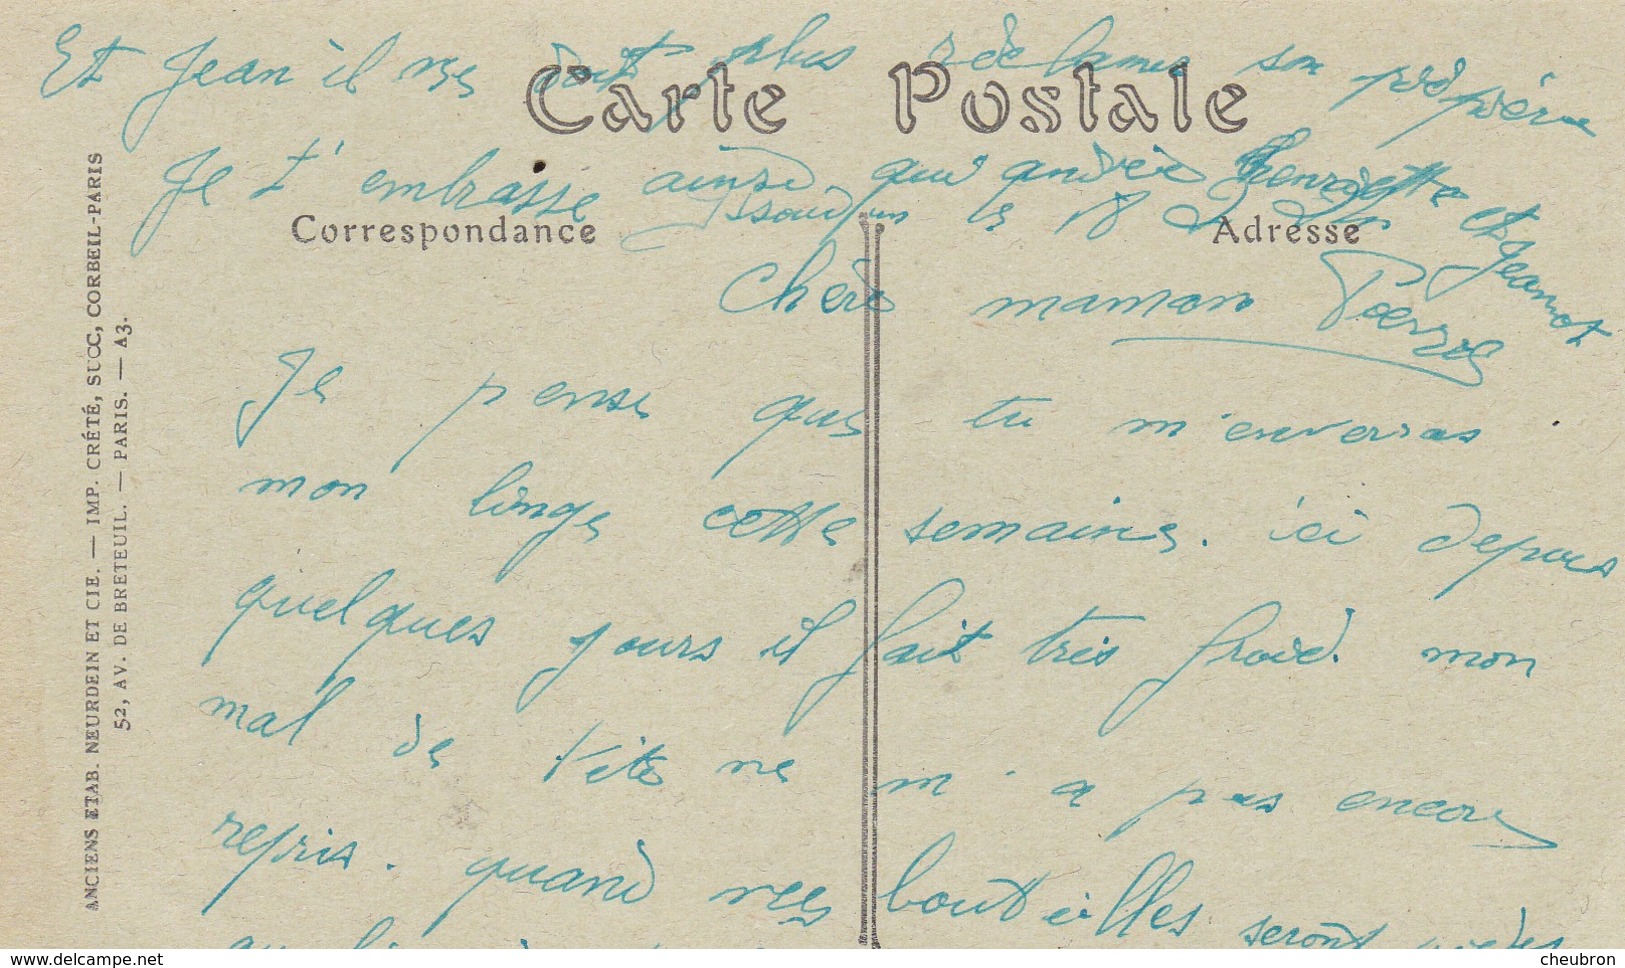 Et Jean il ne doit plus réclamer son pépère
Carte Postale
Je t'embrasse ainsi que andrée henriette et Jeanot
Issoudun le 18
Correspondance
Adresse
Chère maman
Pierre
Je pense que tu m'enverras
mon linge cette semaine. ici depuis
quelques jours il fait très froid. mon
mal de tête ne m'a pas encore
repris. quand mes bouteilles seront vides
ANCIENS ETAB. NEURDEIN ET CIE. — IMP. CRÉTÉ, SUCC, CORBEIL-PARIS
52, AV. DE BRETEUIL. — PARIS. — A3.
www.delcampe.net
cheubron